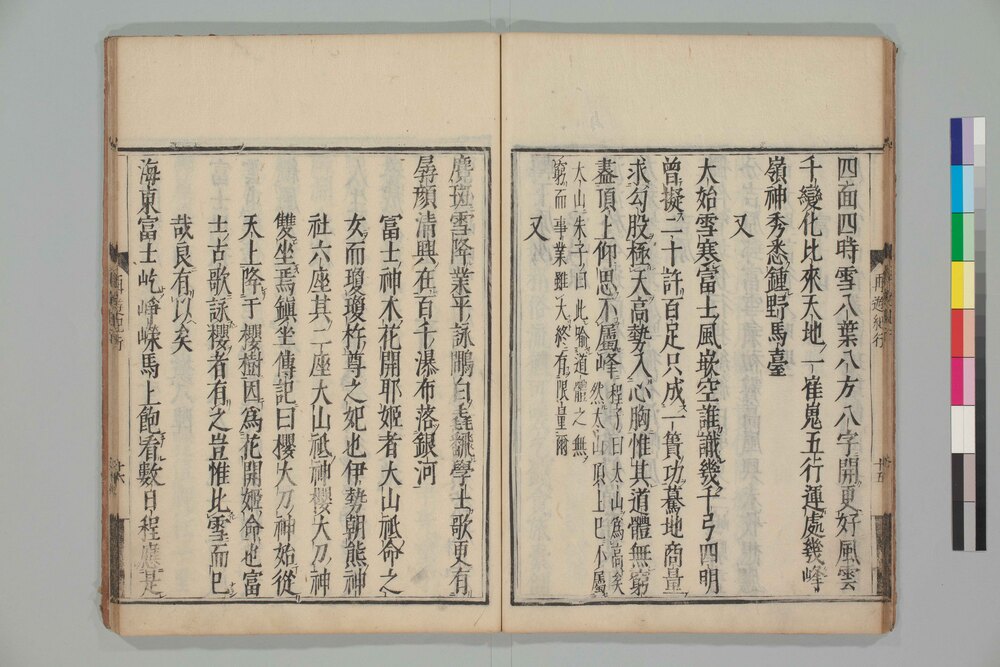 四面四時雪八葉八方八字開更好風雲
千變化比來天地一崔嵬五行運處幾峰
嶺神秀悉鍾野馬臺
又
大始雪寒富士風嵌空誰識幾千弓四明
曾擬二十許百足只成一簣功驀地商量
求勾股極天高勢入心胸惟其道體無窮
盡頂上仰思不屬峰 程子曰太山爲高矣 然太山頂上巳不屬
太山朱子曰此喻道體之無
窮而事業雖大終有限量爾
又
麑斑雪降業平詠鵰白毳飜學士歌更有
孱顏清興在百千瀑布落銀河
富士神木花開耶姬者大山祗命之
女而瓊瓊杵尊之妃也伊勢朝熊神
社六座其二座大山祗神櫻大刀神
雙坐焉鎭坐傳記曰櫻大刀神始從
天上降于櫻樹因爲花開姬命也富
士古歌詠櫻者有之豈惟比雪而巳
哉良有以矣
海東富士屹崢嶸馬上飽看數日程應是
再遊紀行
十五
十六